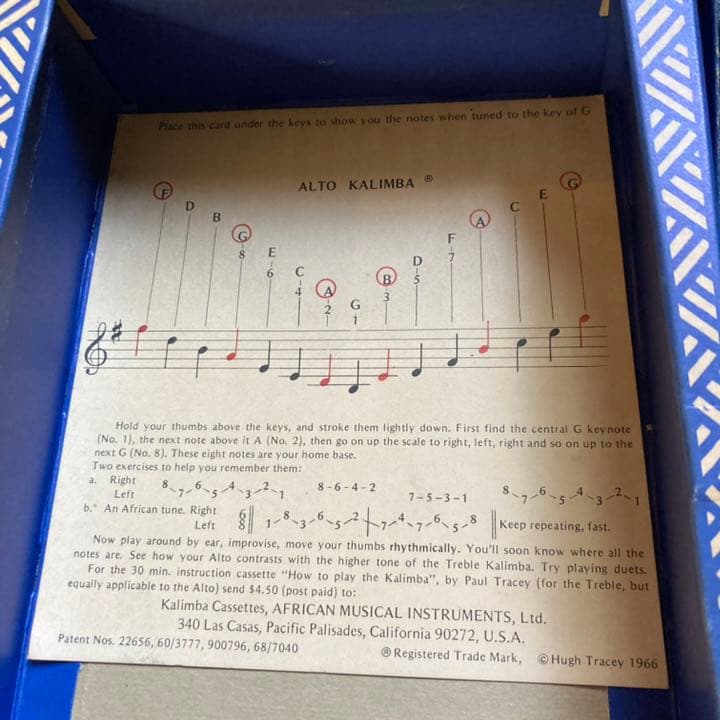 Place this card under the keys to show you the notes when tuned to the key of G
ALTO KALIMBA ®
F D B G E C A G B D F A C E G
8 6 4 2 1 3 5 7
Hold your thumbs above the keys, and stroke them lightly down. First find the central G keynote
(No. 1), the next note above it A (No. 2), then go on up the scale to right, left, right and so on up to the
next G (No. 8). These eight notes are your home base.
Two exercises to help you remember them:
a. Right
Left
8-7-6-5-4-3-2-1 8-6-4-2 7-5-3-1 8-7-6-5-4-3-2-1
b. An African tune. Right
Left
6/8 1-8-3-6-5-2-7-4-7-6-5-8 Keep repeating, fast.
Now play around by ear, improvise, move your thumbs rhythmically. You'll soon know where all the
notes are. See how your Alto contrasts with the higher tone of the Treble Kalimba. Try playing duets.
For the 30 min. instruction cassette "How to play the Kalimba", by Paul Tracey (for the Treble, but
equally applicable to the Alto) send $4.50 (post paid) to:
Kalimba Cassettes, AFRICAN MUSICAL INSTRUMENTS, Ltd.
340 Las Casas, Pacific Palisades, California 90272, U.S.A.
Patent Nos. 22656, 60/3777, 900796, 68/7040 ® Registered Trade Mark, © Hugh Tracey 1966